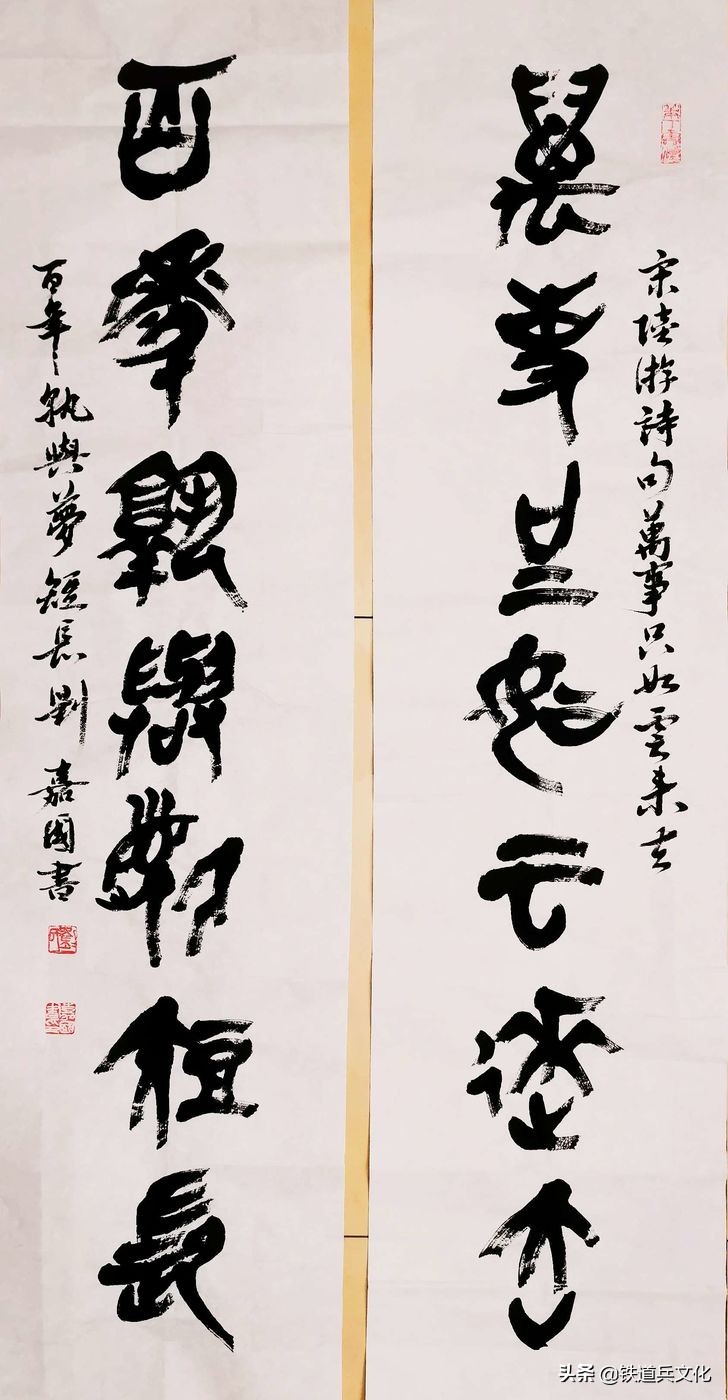 宋陸游詩句萬事只如雲来去
萬事只如云來去
百年孰與夢短長
百年孰與夢短長劉嘉國書
头条 @铁道兵文化